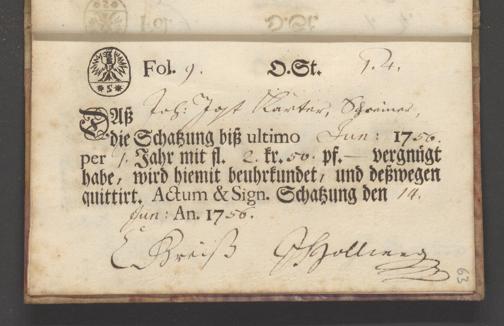 Fol. 9. O.St. 1.4.
Daß Joh: Jost Karter, Schreiner,
die Schatzung biß ultimo Jun: 1756.
per 1. Jahr mit fl. 2. kr. 50. pf. — vergnügt
habe, wird hiemit beuhrkundet, und deßwegen
quittirt. Actum & Sign. Schatzung den 14.
Jun: An. 1756.
Kreiß
63